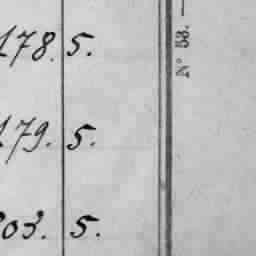 178. 5.
179. 5.
203. 5.
Nº 53. —